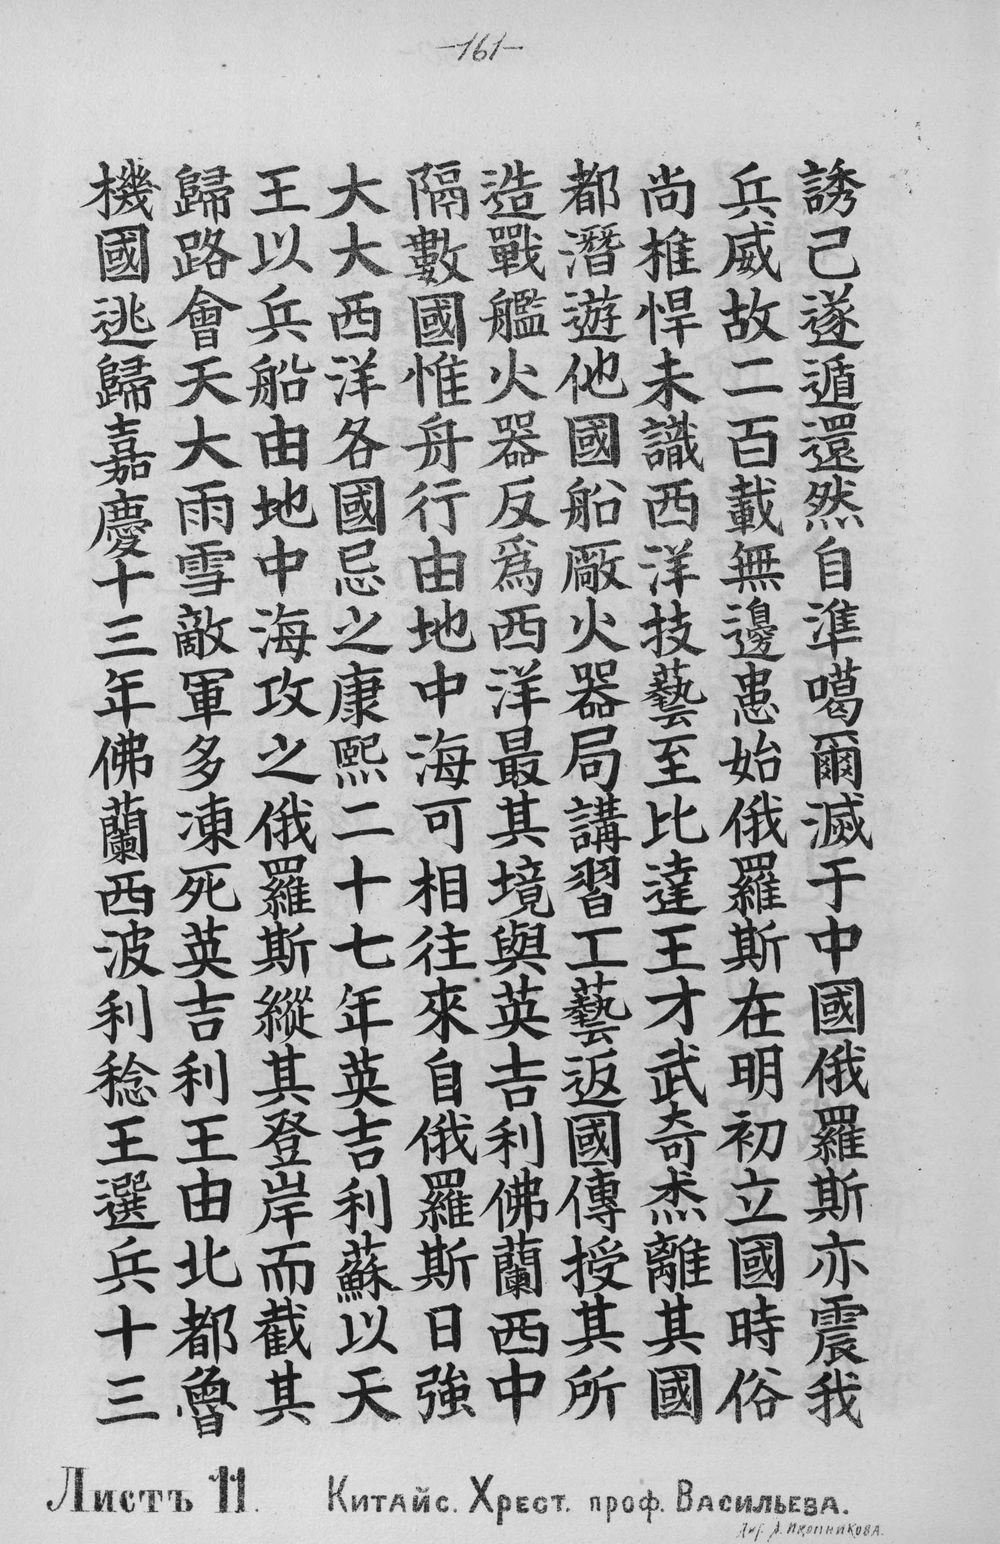 —161—
誘己遂遁還然自準噶爾滅于中國俄羅斯亦震我
兵威故二百載無邊患始俄羅斯在明初立國時俗
尚椎悍未識西洋技藝至比達王才武奇杰離其國
都潛遊他國船厰火器局講習工藝返國傳授其所
造戰艦火器反爲西洋最其境與英吉利佛蘭西中
隔數國惟舟行由地中海可相往來自俄羅斯日強
大大西洋各國忌之康熙二十七年英吉利蘇以天
王以兵船由地中海攻之俄羅斯縱其登岸而截其
歸路會天大雨雪敵軍多凍死英吉利王由北都魯
機國逃歸嘉慶十三年佛蘭西波利稔王選兵十三
Листъ 11. Китайс. Хрест. проф. Васильева.
Лит. А. Иконникова.